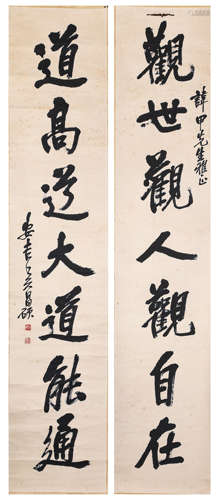 觀世觀人觀自在
先生雅正
道高道大道能通
安吉吳昌碩